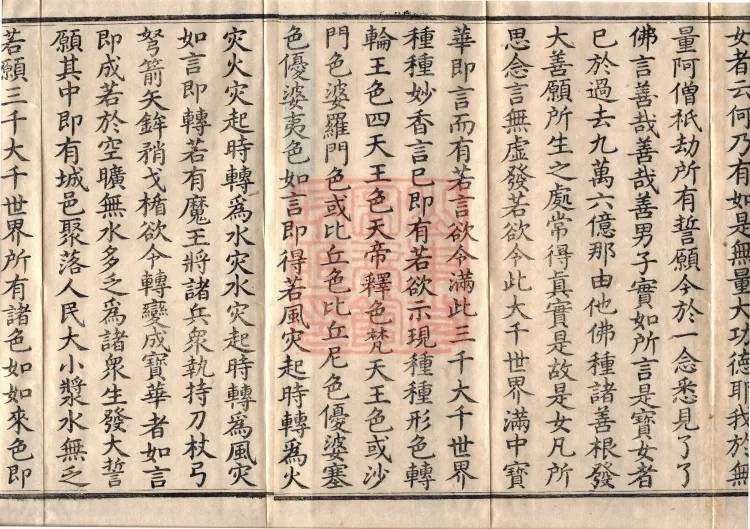 女者云何乃有如是無量大功德耶我於無
量阿僧祇劫所有誓願今於一念悉見了了
佛言善哉善哉善男子實如所言是寶女者
已於過去九萬六億那由他佛種諸善根發
大善願所生之處常得真實是故是女凡所
思念言無虛發若欲令此大千世界滿中寶
華即言而有若言欲令滿此三千大千世界
種種妙香言已即有若欲示現種種形色轉
輪王色四天王色天帝釋色梵天王色或沙
門色婆羅門色或比丘色比丘尼色優婆塞
色優婆夷色如言即得若風灾起時轉為火
灾火灾起時轉爲水灾水灾起時轉為風灾
如言即轉若有魔王將諸兵衆執持刀杖弓
弩箭矢鉾矟戈楯欲令轉變成寶華者如言
即成若於空曠無水多乏爲諸衆生發大誓
願其中即有城邑聚落人民大小漿水無乏
若願三千大千世界所有諸色如如來色即